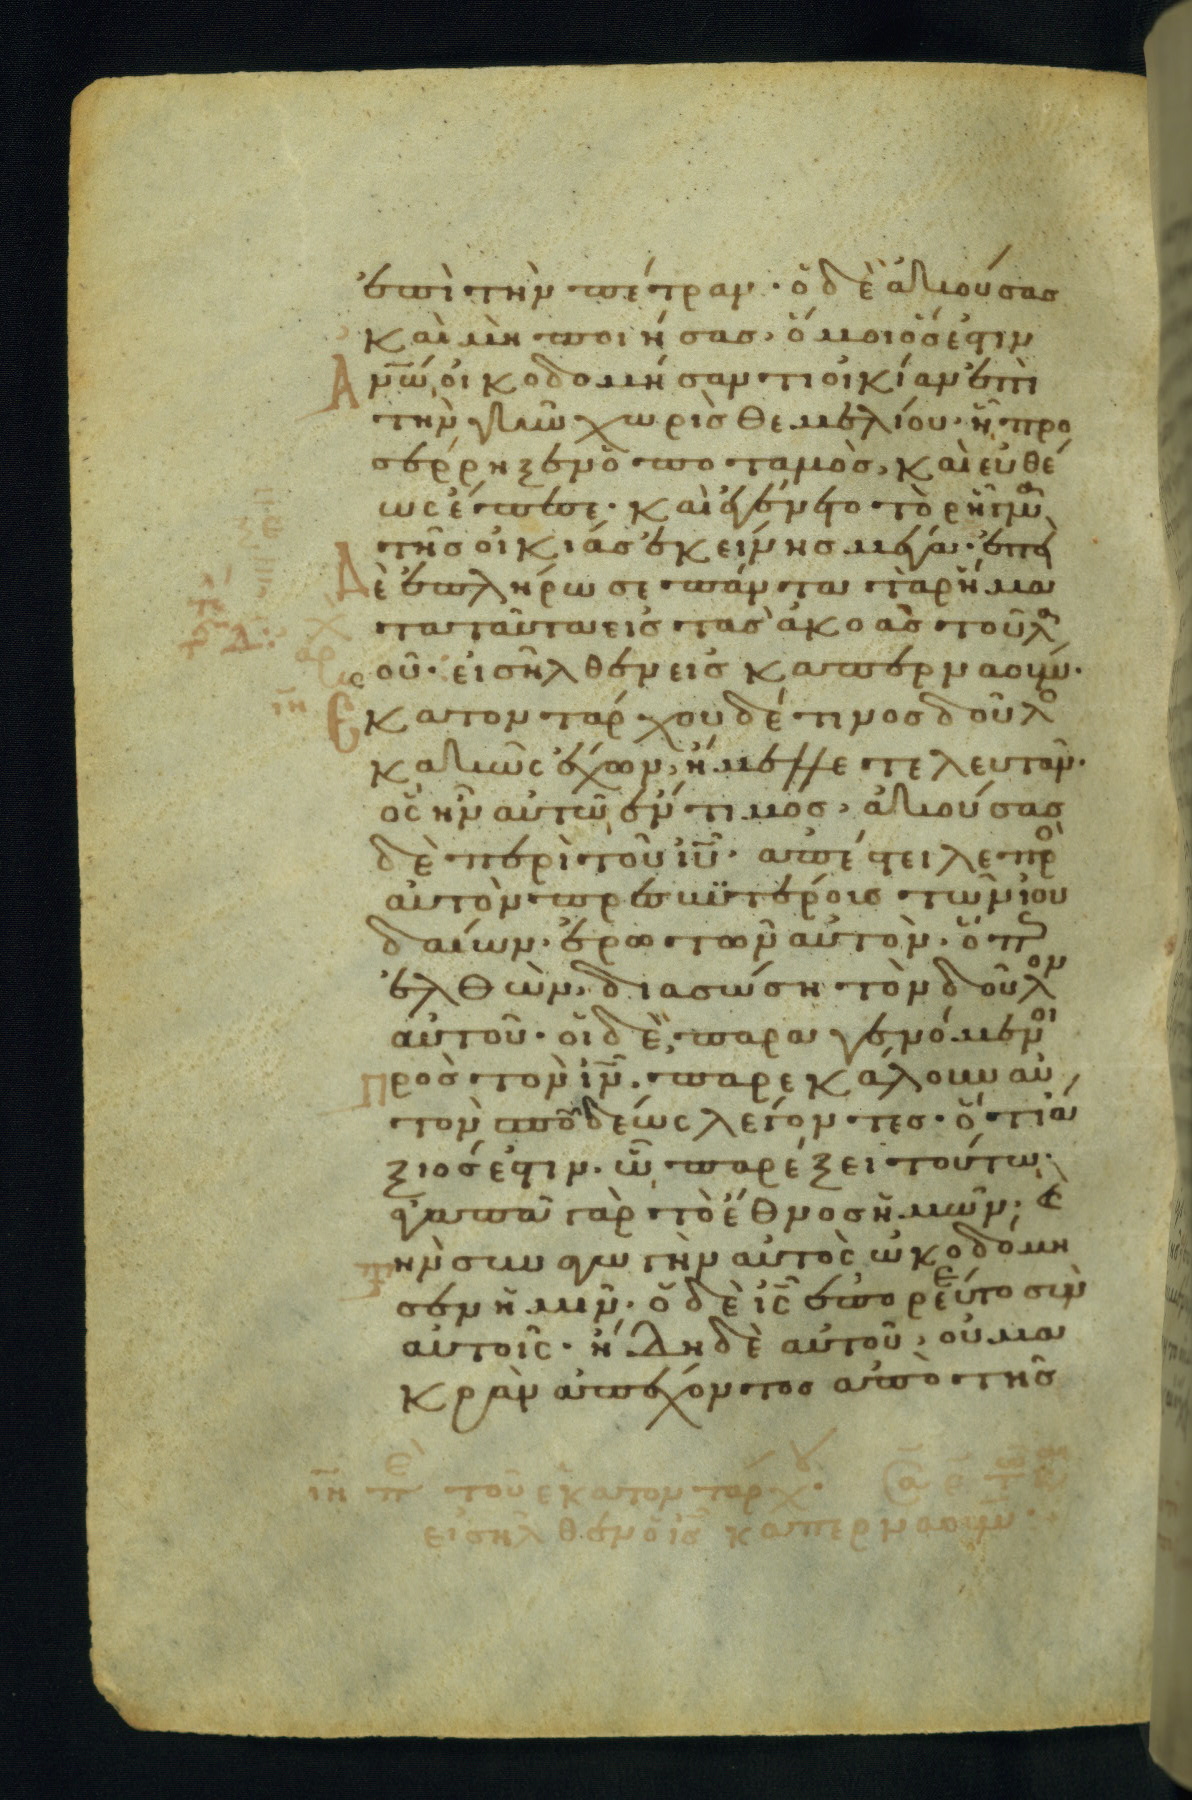 ἐπὶ τὴν πέτραν· ὁ δὲ ἀκούσας
καὶ μὴ ποιήσας, ὅμοιός ἐστιν
ἀνῶ οἰκοδομήσαντι οἰκίαν ἐπὶ
τὴν γῆν χωρὶς θεμελίου· ἧ προ
σέρρηξεν ὁ ποταμὸς, καὶ εὐθέ
ως ἔπεσε· καὶ ἐγένετο τὸ ῥῆγμα
τῆς οἰκίας ἐκείνης μέγα· ἐπεὶ
Δὲ ἐπλήρωσε πάντα τὰ ῥήμα
τα ταῦτα εἰς τὰς ἀκοὰς τοῦ λα
οῦ· εἰσῆλθεν εἰς καπερναούμ·
Ἑκατοντάρχου δέ τινος δοῦλο
κακῶς ἔχων, ἤμελλε τελευτᾶν·
ὃς ἦν αὐτῶ ἔντιμος, ἀκούσας
δὲ περὶ τοῦ ιυ· ἀπέστειλε πρὸ
αὐτὸν πρεσβυτέρους τῶν ἰου
δαίων· ἐρωτῶν αὐτὸν· ὅπως
ἐλθὼν, διασώση τὸν δοῦλον
αὐτοῦ· οἱ δὲ παραγενόμενοι
Πρὸς τὸν ιν, παρεκάλουν αὐ
τὸν σπουδέως λέγοντες· ὅτι ἄ
ξιός ἐστιν· ὧ παρέξει τοῦτω·
ἀγαπᾶ γὰρ τὸ ἔθνος ἡμῶν,
τὴν συναγωγὴν αὐτὸς ὠκοδόμη
σεν ἡμῖν· ὁ δὲ ις ἐπορεύετο σὺν
αὐτοῖς· ἤδη δὲ αὐτοῦ, οὐ μα
κρὰν ἀπέχοντος ἀπὸ τῆς
ιη π τοῦ ἑκατοντάρχου·
εἰσῆλθεν ὁ ις καπερναούμ·